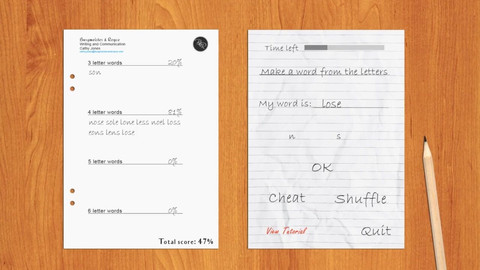 Writing and Communication
Cathy Jones
3 letter words 20%
son
4 letter words 81%
nose sole lone less noel loss
eons lens lose
5 letter words 0%
6 letter words 0%
Total score: 47%
Time left
Make a word from the letters
My word is: lose
n s
OK
Cheat Shuffle
View Tutorial Quit